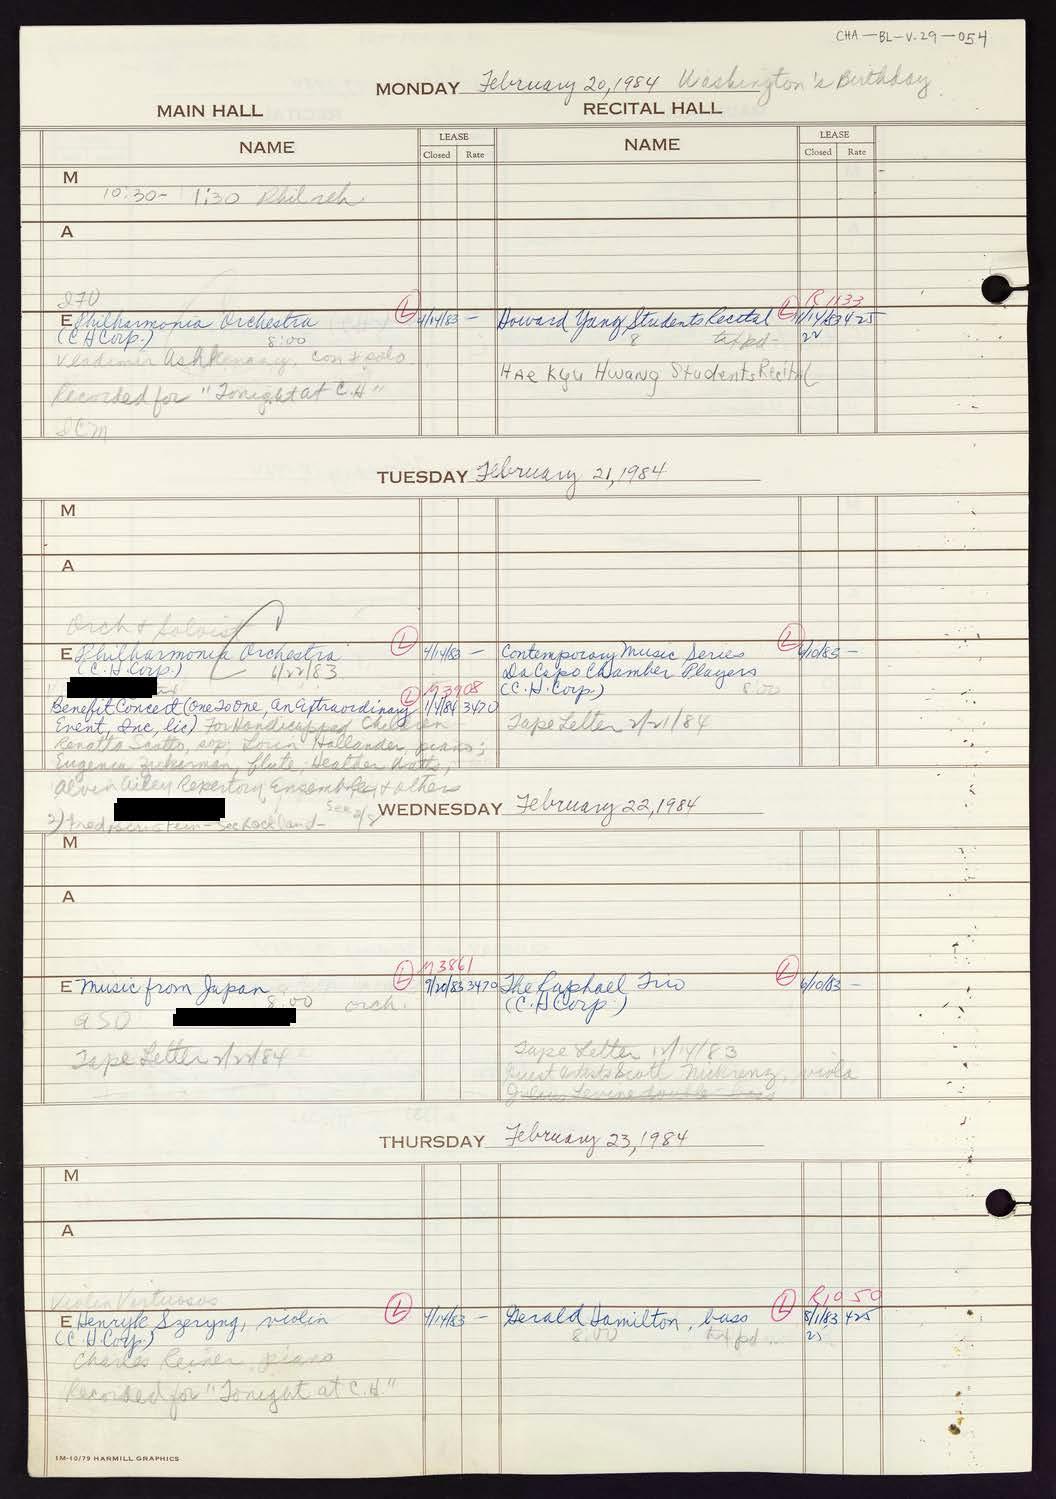 CHA-BL-V.29-054
MONDAY February 20, 1984 Washington's Birthday
MAIN HALL RECITAL HALL
NAME LEASE Closed Rate NAME LEASE Closed Rate
M
10:30- 1:30 Phil reh
A
R 1133
E Philharmonia Orchestra L 4/14/83 - Howard Yang Students Recital L 11/14/83 425
(C H Corp.) 8:00 8 22
Vladimir Ashkenazy, con & solo
HAe Kyu Hwang Students Recital
Recorded for "Tonight at C.H"
ICM
TUESDAY February 21, 1984
M
A
Orch & Soloist
E Philharmonia Orchestra L 4/14/83 - Contemporary Music Series L 6/10/83 -
(C.H.Corp.) 6/22/83 Da Capo Chamber Players
L M3908 (C.H.Corp.) 8:00
Benefit Concert (One To One An Extraordinary 1/4/84 3470
Event, Inc, lic) For Handicapped Children Tape Letter 2/21/84
Renatta Scotto, sop; Lorin Hollander, piano;
Eugenia Zukerman, flute; Heather Watts,
Alvin Ailey Repertory Ensemble & others
See 2/8
WEDNESDAY February 22, 1984
2) Fred Bernstein - See Rockland -
M
A
M3861
E Music from Japan L 9/20/83 3470 The Raphael Trio L 6/10/83 -
8:00 orch. (C.H Corp.)
Tape Letter 2/22/84 Tape Letter 12/14/83
Guest artists Scott Nickrenz, viola
Julius Levine double bass
THURSDAY February 23, 1984
M
A
Violin Virtuosos
R1050
E Henryk Szeryng, violin L 4/14/83 - Gerald Hamilton, bass L 8/1/83 425
(C.H.Corp.) 8:00
Charles Reiner, piano
Recorded for "Tonight at C.H."
1M-10/79 HARMILL GRAPHICS